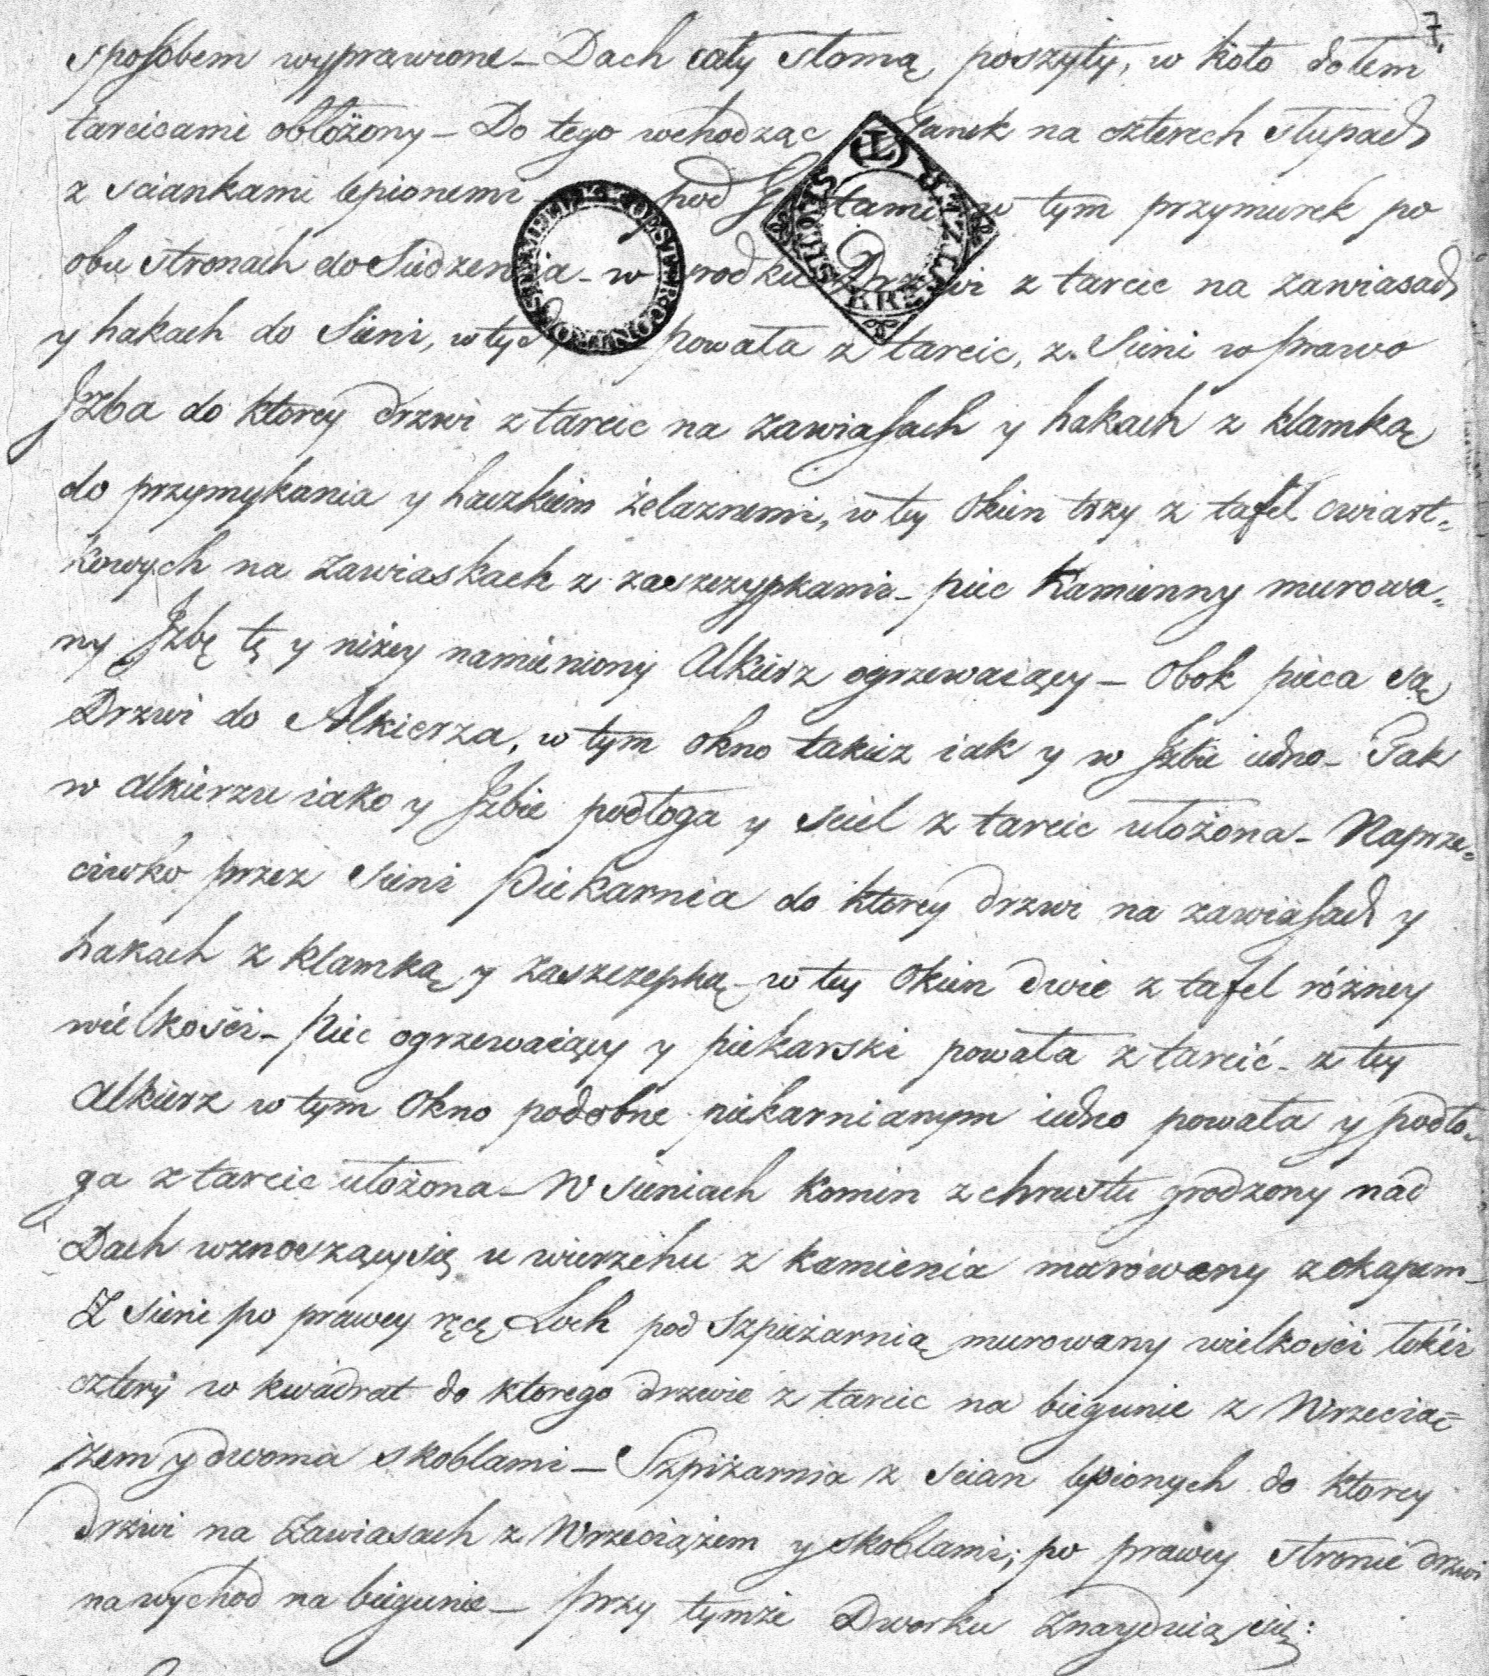 7.
sposobem wyprawione – Dach cały słomą poszyty, w koło dołem
tarcicami obłożony – Do tego wchodząc Ganek na czterech słupach
z sciankami lepionemi pod w tym przymurek po
obu stronach do Siedzenia – w srodku Drzwi z tarcic na zawiasach
y hakach do Sieni, w tych powała z tarcic, z Sieni w prawo
Jzba do ktorey drzwi z tarcic na zawiasach y hakach z klamką
do przymykania y haczkiem żelaznemi, w tey Okien trzy z tafel cwiart=
kowych na zawiaskach z zaszczypkami – piec Kamienny murowa=
ny Jzbę tę y niżey namieniony Alkierz ogrzewaiący – Obok pieca są
Drzwi do Alkierza, w tym okno takież iak y w Jzbie iedno – Tak
w alkierzu iako y Jzbie podłoga y sciel z tarcic ułożona – Naprze=
ciwko przez Sieni Piekarnia do ktorey drzwi na zawiasach y
hakach z klamką y zaszczepką – w tey Okien dwie z tafel różney
wielkości – Piec ogrzewaiący y piekarski powała z tarcić – z tey
Alkierz w tym Okno podobne piekarnianym iedno powała y podło=
ga z tarcic ułożona – W sieniach Komin z chrustu grodzony nad
Dach wznoszący się u wierzchu z Kamienia murowany z okapem –
Z Sieni po prawey ręcę Loch pod Szpiżarnią murowany wielkości łokći
cztery w kwadrat do ktorego drzwie z tarcic na biegunie z Wrzecią=
żem y dwoma skoblami – Szpiżarnia z scian lepionych do ktorey
drzwi na Zawiasach z Wrzeciążem y skoblami; po prawey stronie drzwi
na wychod na biegunie – przy tymże Dworku znayduią się: